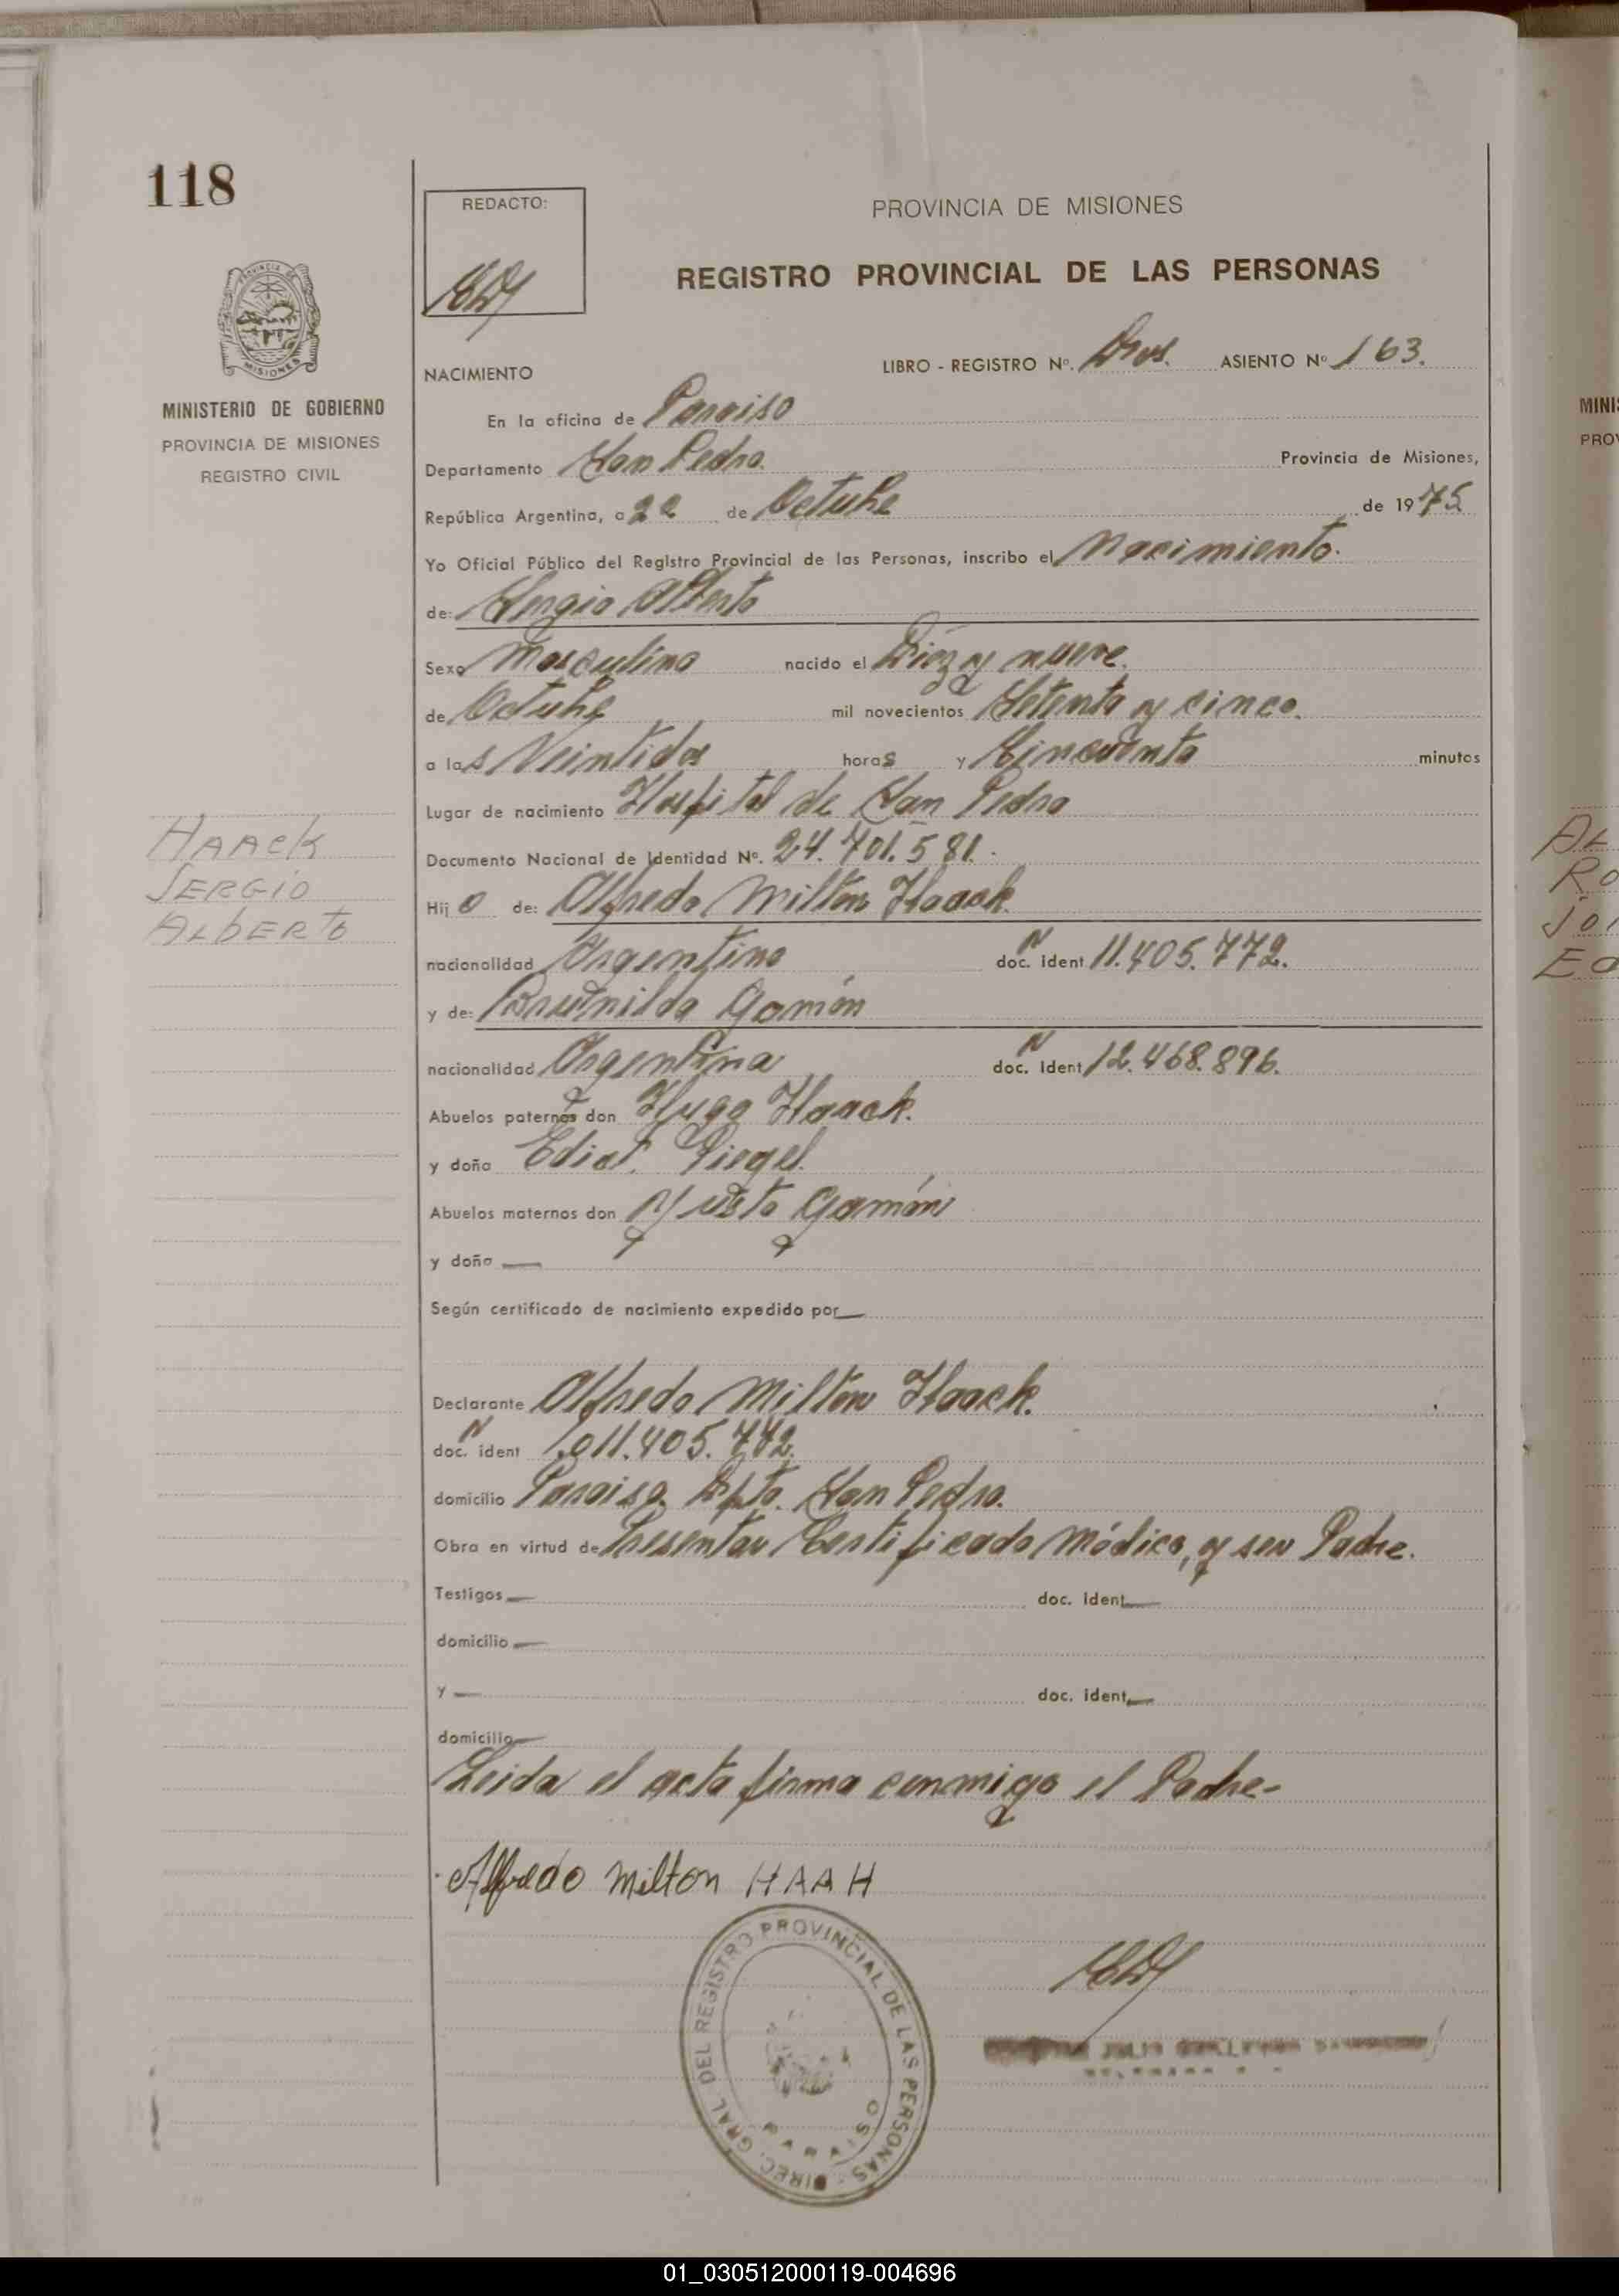 118
REDACTO:
PROVINCIA DE MISIONES
REGISTRO PROVINCIAL DE LAS PERSONAS
PROVINCIA DE MISIONES
MINISTERIO DE GOBIERNO
PROVINCIA DE MISIONES
REGISTRO CIVIL
NACIMIENTO
LIBRO - REGISTRO Nº. Dos. ASIENTO Nº 163.
En la oficina de Paraiso
Departamento San Pedro. Provincia de Misiones,
República Argentina, a 22 de Octubre de 1975
Yo Oficial Público del Registro Provincial de las Personas, inscribo el Nacimiento.
de: Sergio Alberto
Sexo Masculino nacido el Diez y nueve.
de Octubre mil novecientos Setenta y cinco.
a las Veintidos horas y Cincuenta minutos
Lugar de nacimiento Hospital de San Pedro
Documento Nacional de Identidad Nº. 24.701.581.
Hijo de: Alfredo Milton Haack.
nacionalidad Argentino doc. ident N 11.405.772.
y de: Brunilda Gamón
nacionalidad Argentina doc. ident N 12.468.896.
Abuelos paternos don Hugo Haack.
y doña Piegel.
Abuelos maternos don Yusto Gamón
y doña —
Según certificado de nacimiento expedido por —
Declarante Alfredo Milton Haack.
doc. ident N 11.405.772.
domicilio Paraiso. Dpto. San Pedro.
Obra en virtud de Presentar Certificado Módico, y ser Padre.
Testigos — doc. ident —
domicilio —
y — doc. ident. —
domicilio —
Leida el acta firma conmigo el Padre-
Alfredo Milton HAAH
HAACK
SERGIO
ALBERTO
DIREC. GRAL. DEL REGISTRO PROVINCIAL DE LAS PERSONAS
PARAISO
JULIO
MINIS
PROV
AL
RO
JO
ED
01_030512000119-004696